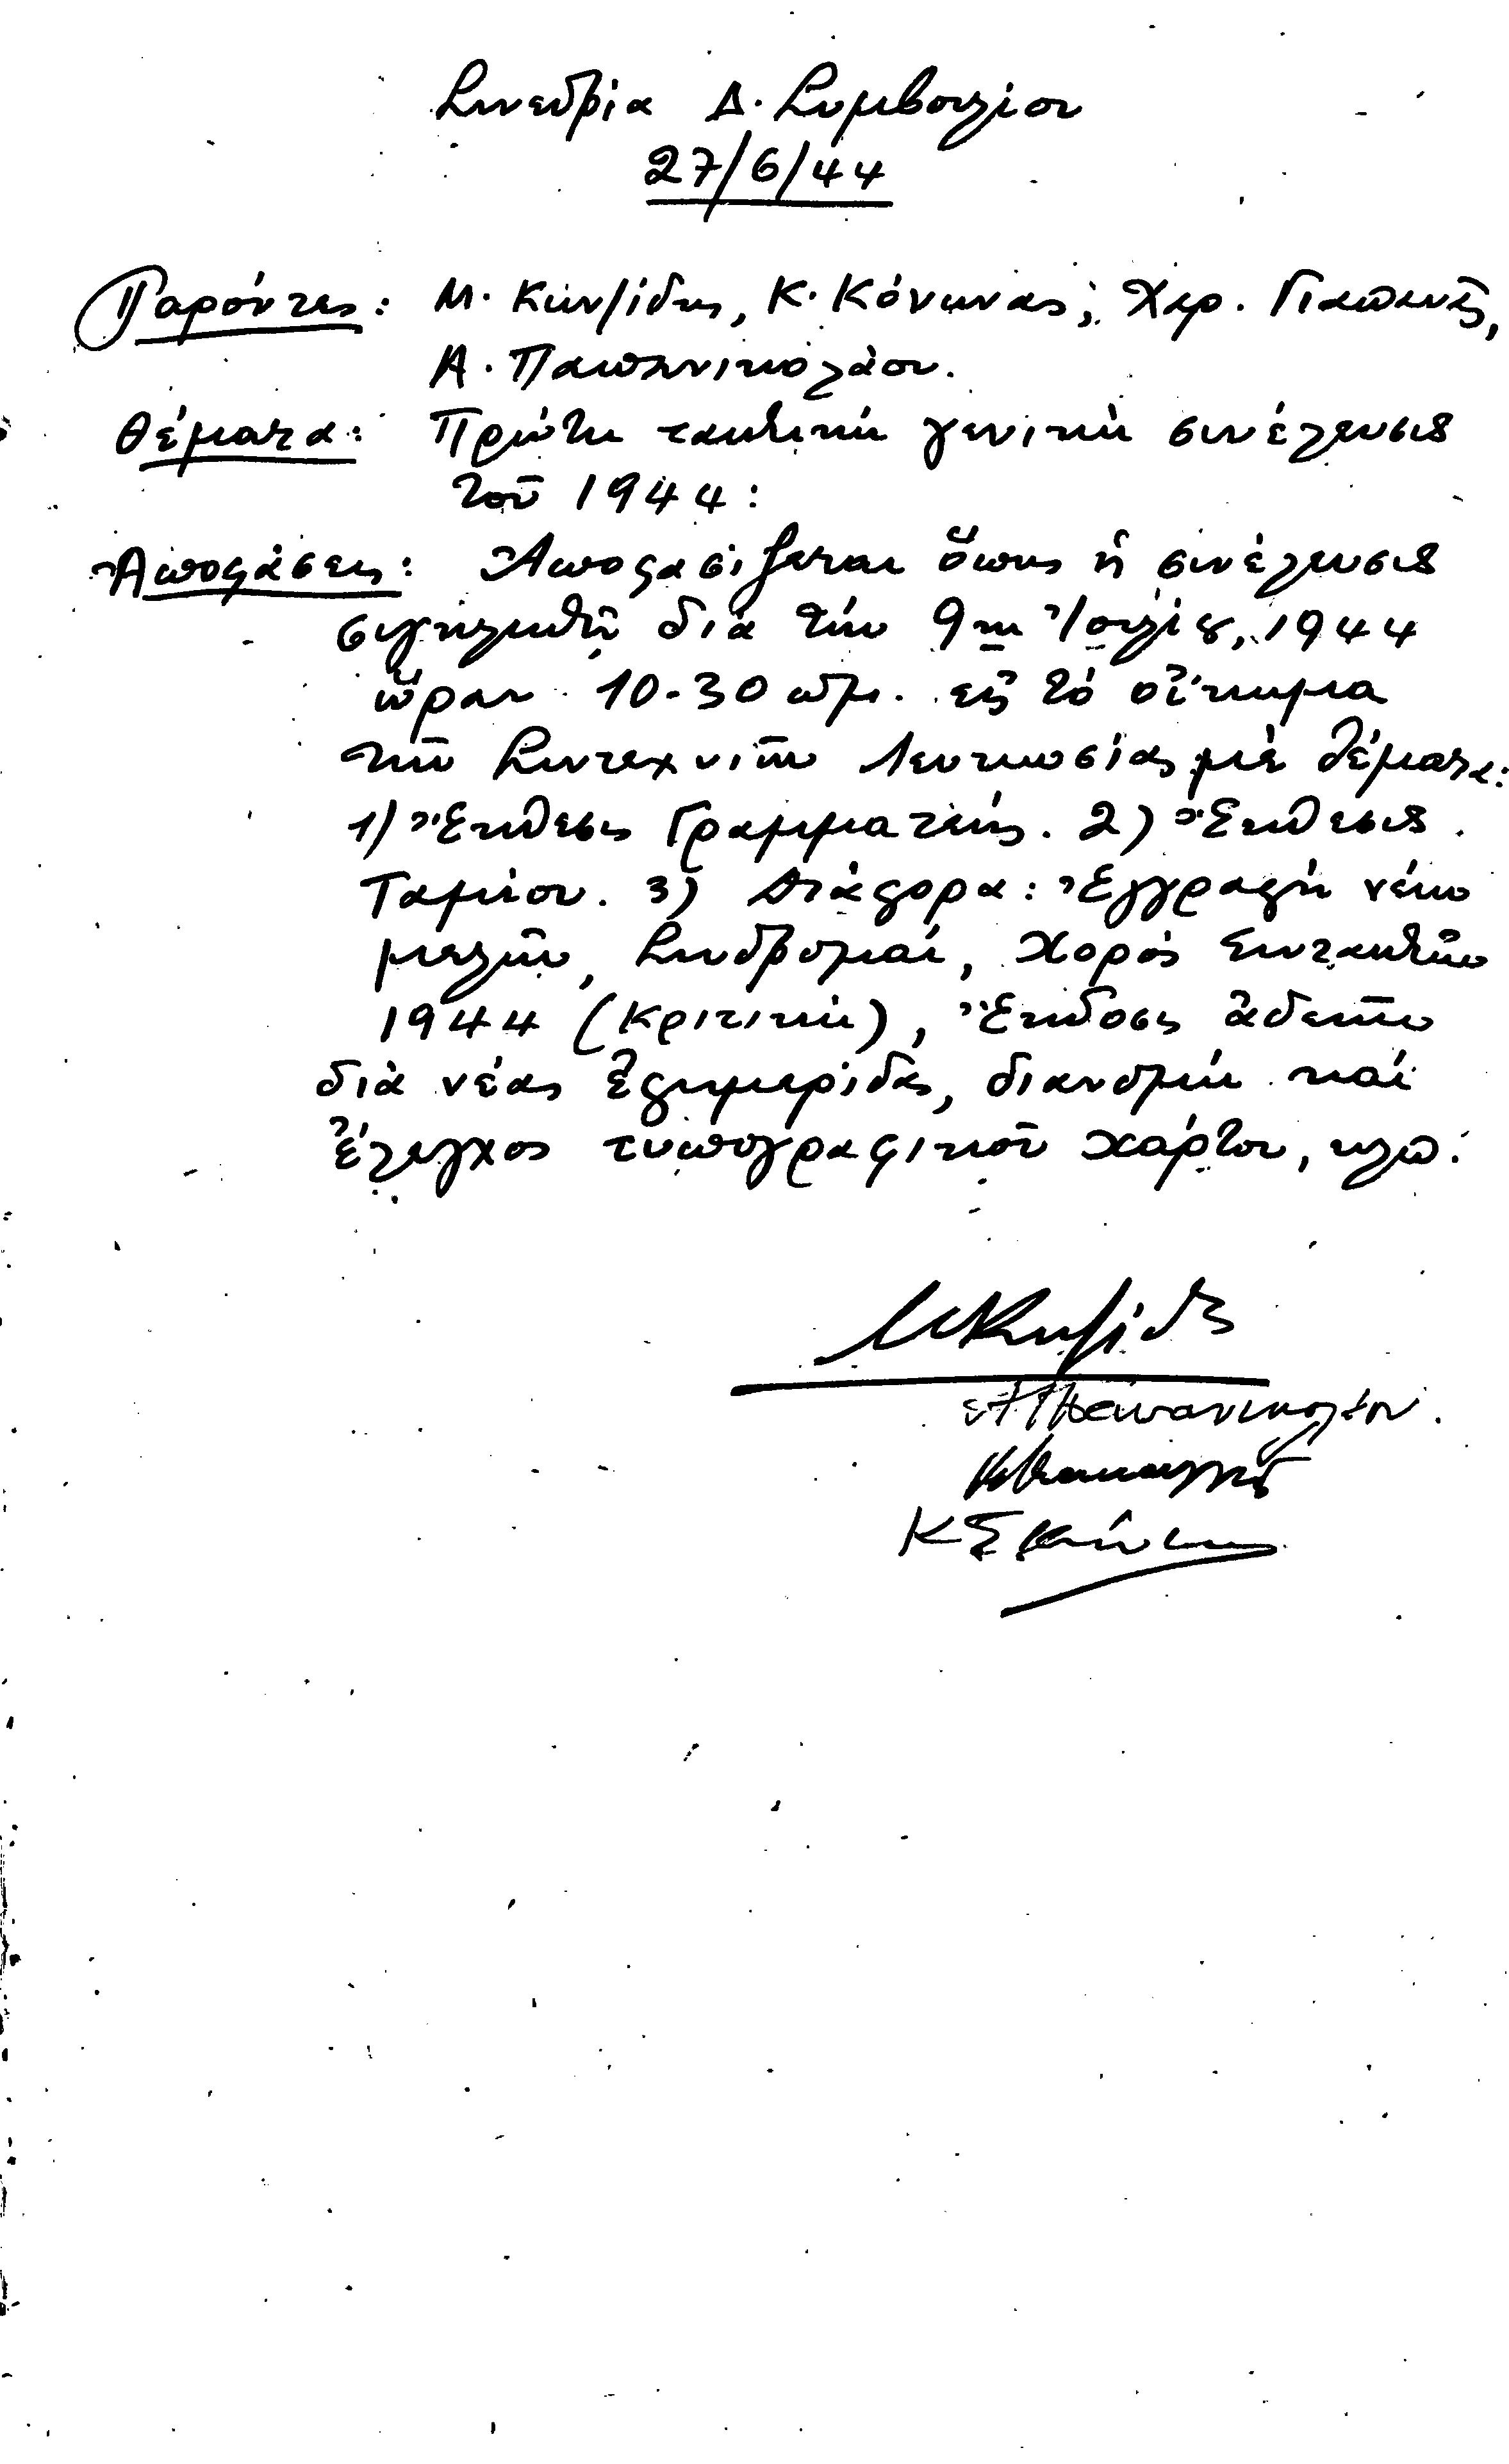 Συνεδρία Δ. Συμβουλίου
27/6/44
Παρόντες: Μ. Κωνσ/ίδης, Κ. Κόνωνας, Χαρ.
Α. Παπανικολάου.
Θέματα: Πρώτη τακτική γενική συνέλευσις
τοῦ 1944:
Ἀποφάσεις: Ἀποφασίζεται ὅπως ἡ συνέλευσις
συγκληθῇ διὰ τὴν 9ην Ἰουλίου, 1944
ὥραν 10-30 πμ. εἰς τὸ οἴκημα
τῶν Συντεχνιῶν Λευκωσίας μὲ θέματα:
1) Ἔκθεσις Γραμματέως. 2) Ἔκθεσις
Ταμίου. 3) Διάφορα: Ἐγγραφὴ νέων
μελῶν, Συνδρομαί, Χορὸς Συντακτῶν
1944 (Κριτική), Ἔκδοσις ἀδειῶν
διὰ νέας ἐφημερίδας, διανομὴ καὶ
ἔλεγχος τυπογραφικοῦ χάρτου, κλπ.
Α Παπανικολάου.